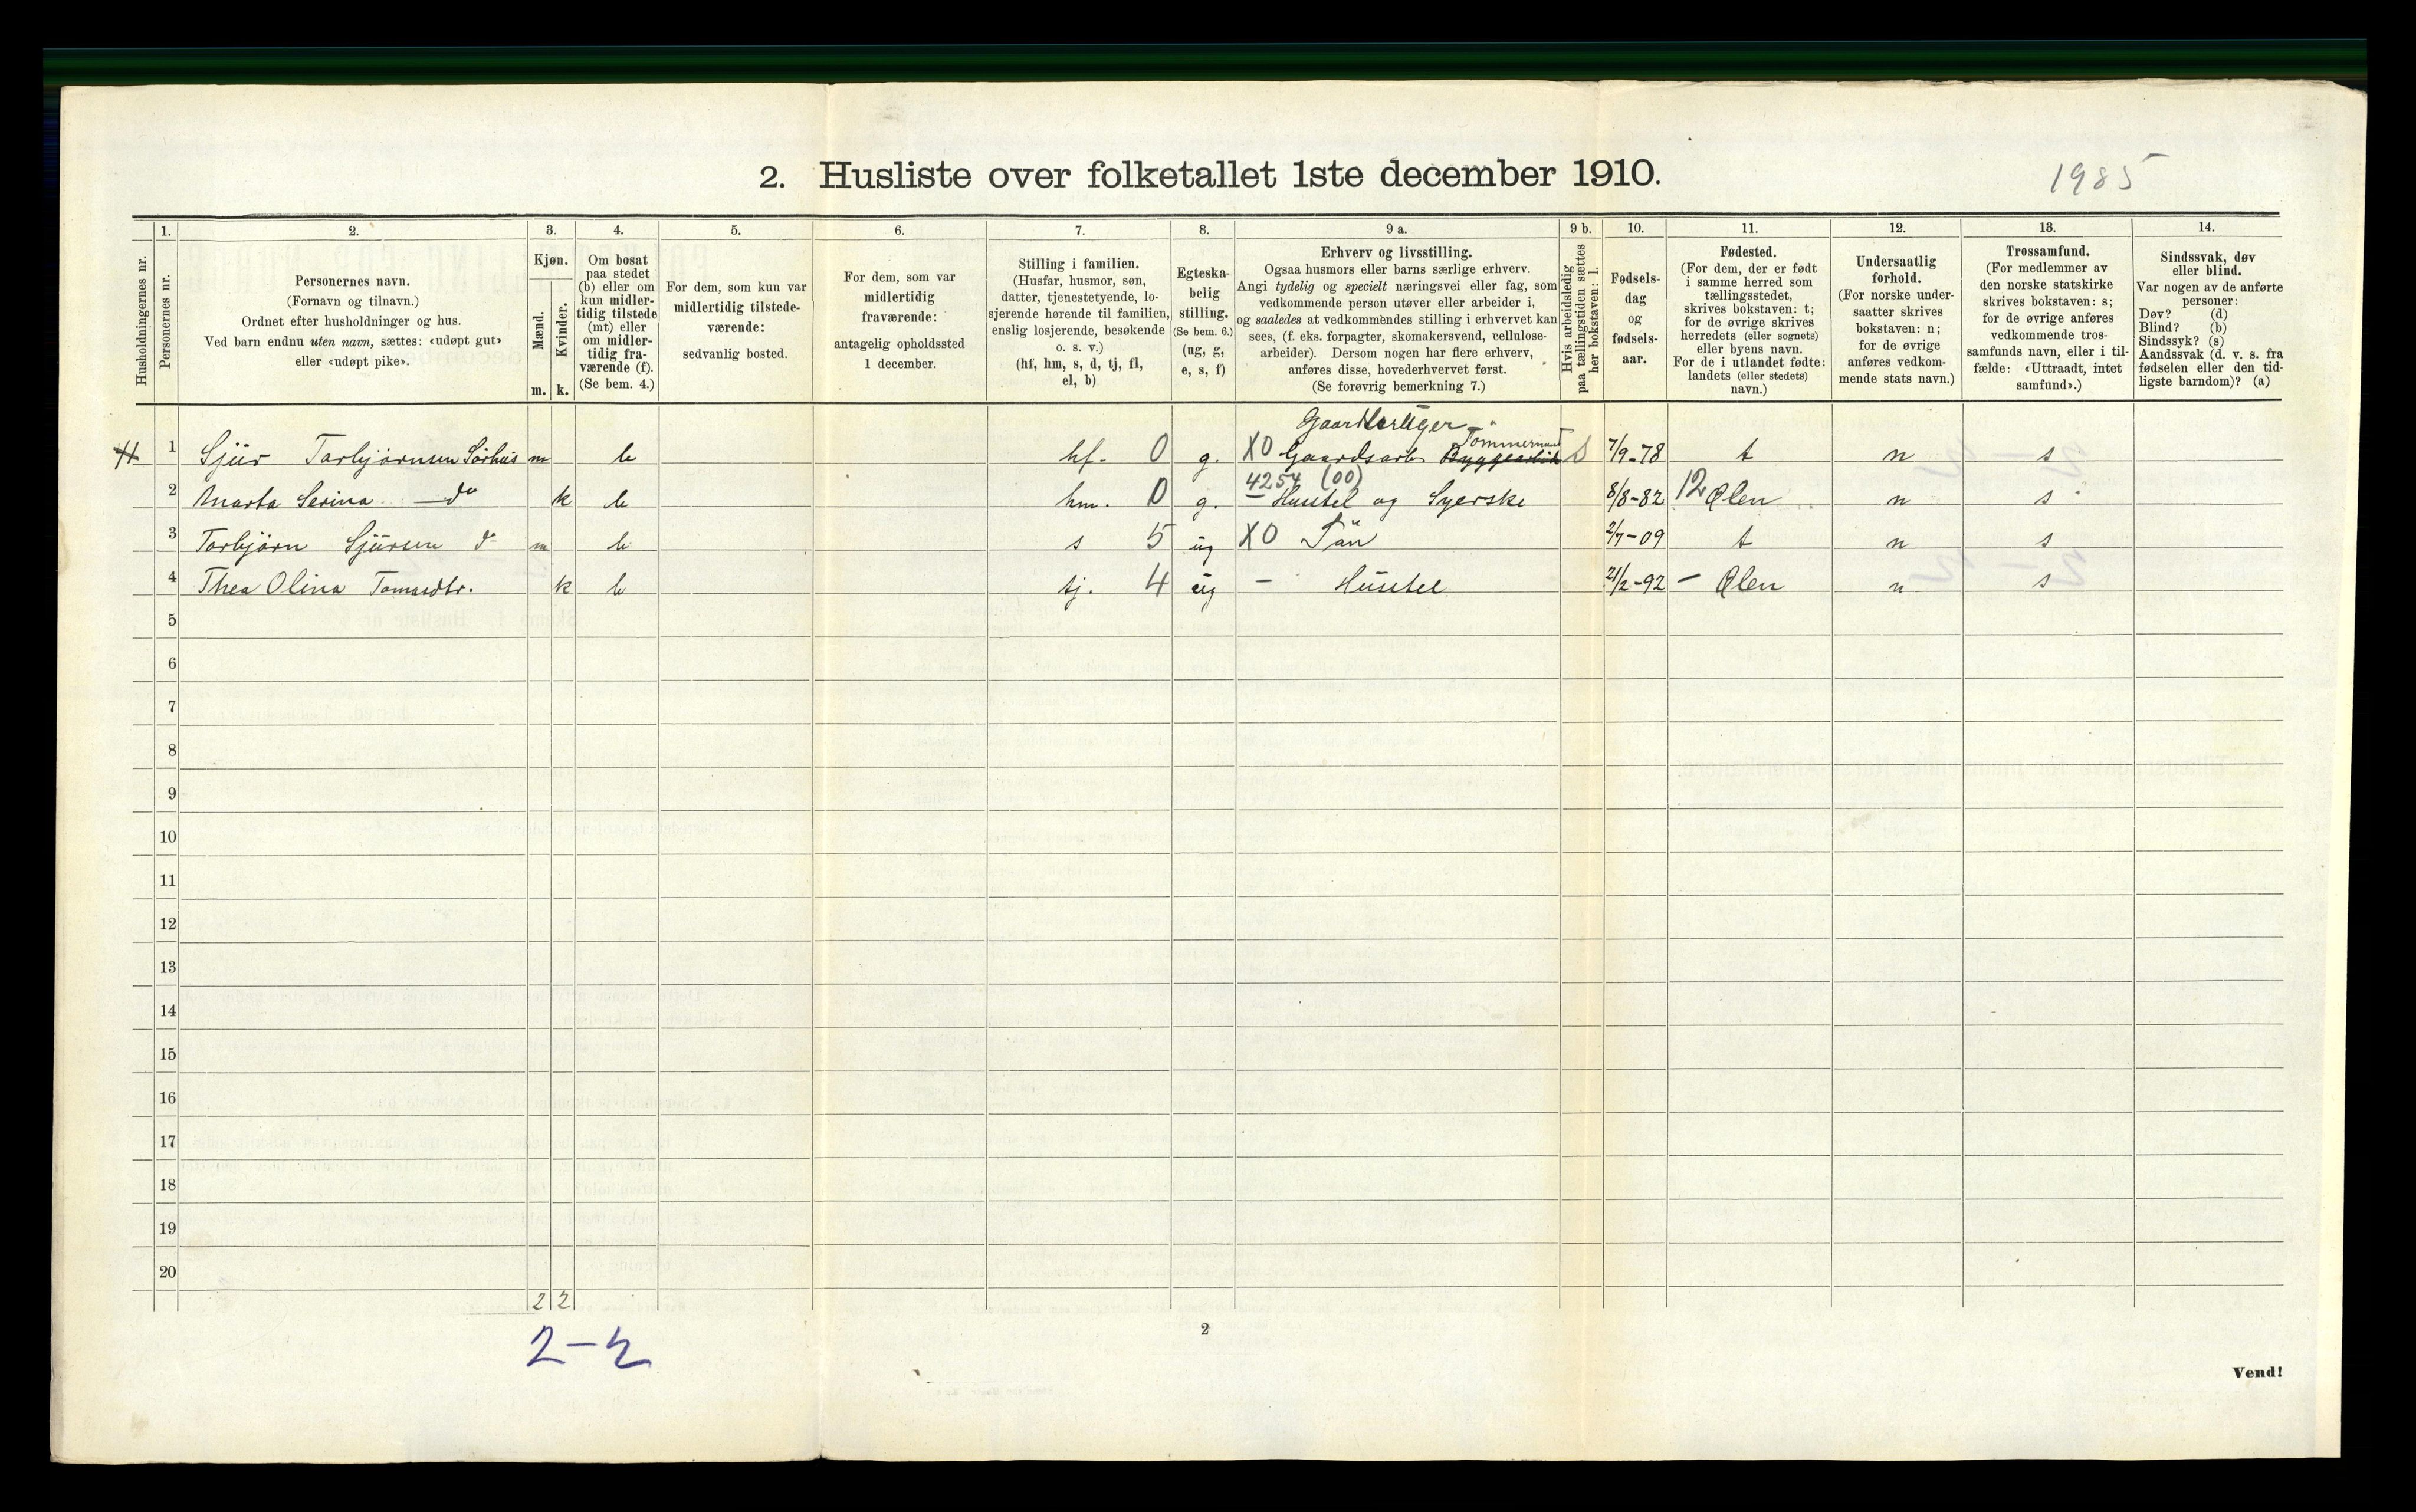 2. Husliste over folketallet 1ste december 1910.
1985
1.
2.
3.
4.
5.
6.
7.
8.
9 a.
9 b.
10.
11.
12.
13.
14.
Husholdningernes nr.
Personernes nr.
Personernes navn.
(Fornavn og tilnavn.)
Ordnet efter husholdninger og hus.
Ved barn endnu uten navn, sættes: «udøpt gut»
eller «udøpt pike».
Kjøn.
Mænd.
Kvinder.
m. k.
Om bosat
paa stedet
(b) eller om
kun midler-
tidig tilstede
(mt) eller
om midler-
tidig fra-
værende (f).
(Se bem. 4.)
For dem, som kun var
midlertidig tilstede-
værende:
sedvanlig bosted.
For dem, som var
midlertidig
fraværende:
antagelig opholdssted
1 december.
Stilling i familien.
(Husfar, husmor, søn,
datter, tjenestetyende, lo-
sjerende hørende til familien,
enslig losjerende, besøkende
o. s. v.)
(hf, hm, s, d, tj, fl,
el, b)
Egteska-
belig
stilling.
(Se bem. 6.)
(ug, g,
e, s, f)
Erhverv og livsstilling.
Ogsaa husmors eller barns særlige erhverv.
Angi tydelig og specielt næringsvei eller fag, som
vedkommende person utøver eller arbeider i,
og saaledes at vedkommendes stilling i erhvervet kan
sees, (f. eks. forpagter, skomakersvend, cellulose-
arbeider). Dersom nogen har flere erhverv,
anføres disse, hovederhvervet først.
(Se forøvrig bemerkning 7.)
Hvis arbeidsledig
paa tællingstiden sættes
her bokstaven: l.
Fødsels-
dag
og
fødsels-
aar.
Fødested.
(For dem, der er født
i samme herred som
tællingsstedet,
skrives bokstaven: t;
for de øvrige skrives
herredets (eller sognets)
eller byens navn.
For de i utlandet fødte:
landets (eller stedets)
navn.)
Undersaatlig
forhold.
(For norske under-
saatter skrives
bokstaven: n;
for de øvrige
anføres vedkom-
mende stats navn.)
Trossamfund.
(For medlemmer av
den norske statskirke
skrives bokstaven: s;
for de øvrige anføres
vedkommende tros-
samfunds navn, eller i til-
fælde: «Uttraadt, intet
samfund».)
Sindssvak, døv
eller blind.
Var nogen av de anførte
personer:
Døv? (d)
Blind? (b)
Sindssyk? (s)
Aandssvak (d. v. s. fra
fødselen eller den tid-
ligste barndom)? (a)
1 Sjur Torbjørnsen Sørhus m b hf. 0 g. X0 Gaardsarb. Tømmermand 7/9-78 t n s
4254 (00)
2 Marta Serina — do k b hm. 0 g. — Husstel og Syerske 8/8-82 12 Ølen n s
3 Torbjørn Sjursen do m b s 5 ug X0 Søn 2/7-09 t n s
4 Thea Olina Tomasdtr. k b tj. 4 ug — Husstel 21/2-92 — Ølen n s
5
6
7
8
9
10
11
12
13
14
15
16
17
18
19
20
2 2
2-2
2
Vend!